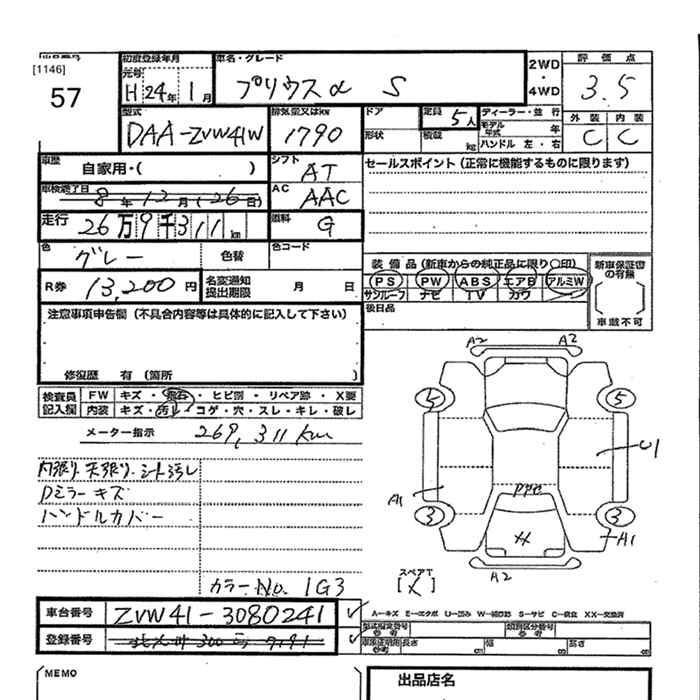 [1146]
57
初度登録年月
元号
H 24年 1月
車名・グレード
プリウスα S
2WD
・
4WD
評価点
3.5
型式
DAA-ZVW41W
排気量又はkW
1790
ドア
形状
定員
5人
積載
kg
ディーラー・並行
モデル年式 年
ハンドル 左・右
外装
内装
C
C
車歴
自家用・( )
シフト
AT
セールスポイント(正常に機能するものに限ります)
車検満了日
8年 12月(26日)
AC
AAC
走行
26万9千311km
燃料
G
色
グレー
色替
色コード
R券
13,200円
名変通知
提出期限
月 日
装備品(新車からの純正品に限り〇印)
PS PW ABS エアB アルミW
サンルーフ ナビ TV カワ
後日品
新車保証書
の有無
車載不可
注意事項申告欄(不具合内容等は具体的に記入して下さい)
修復歴 有(箇所 )
検査員
記入欄
FW
キズ・飛石・ヒビ割・リペア跡・X要
内装
キズ・汚れ・コゲ・穴・スレ・キレ・破レ
メーター指示
269,311km
内張り 天張り シート汚し
Dミラーキズ
ハンドルカバー
カラーNo. 1G3
A2
A2
5
5
U1
A1
3
3
A1
A2
スペアT
[X]
A-キズ E-エクボ U-凹み W-補修跡 S-サビ C-腐食 XX-交換済
車台番号
ZVW41-3080241
登録番号
型式指定番号
参考
類別区分番号
参考
車両証明用
参考
長さ
cm
幅
cm
高さ
cm
MEMO
出品店名